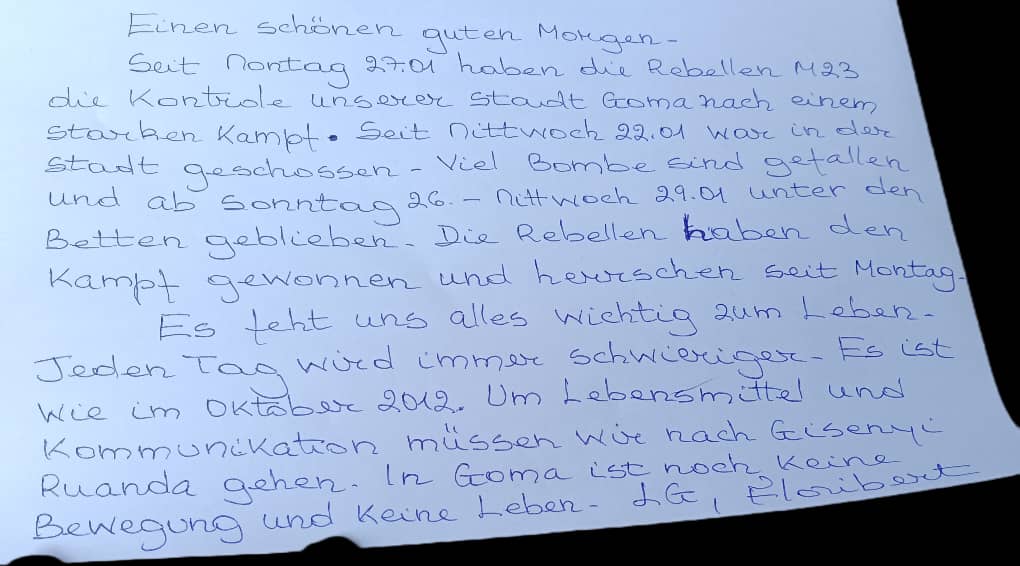 Einen schönen guten Morgen -
Seit Montag 27.01 haben die Rebellen M23
die Kontrole unserer Stadt Goma nach einem
starken Kampf. Seit Mittwoch 22.01 war in der
Stadt geschossen - Viel Bombe sind gefallen
und ab Sonntag 26. - Mittwoch 29.01 unter den
Betten geblieben. Die Rebellen haben den
Kampf gewonnen und herrschen seit Montag.
Es feht uns alles wichtig zum Leben.
Jeden Tag wird immer schwieriger. Es ist
wie im Oktober 2012. Um Lebensmittel und
Kommunikation müssen wir nach Gisenyi
Ruanda gehen. In Goma ist noch keine
Bewegung und keine Leben. LG, Floribert